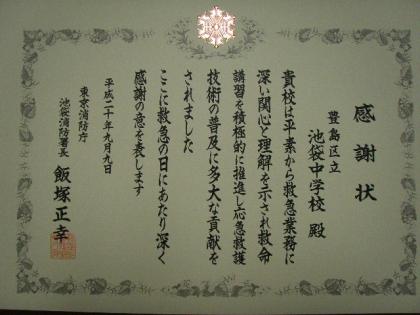 感謝状
豊島区立
池袋中学校 殿
貴校は平素から救急業務に
深い関心と理解を示され救命
講習を積極的に推進し応急救護
技術の普及に多大な貢献を
されました
ここに救急の日にあたり深く
感謝の意を表します
平成二十年九月九日
東京消防庁
池袋消防署長 飯塚正幸